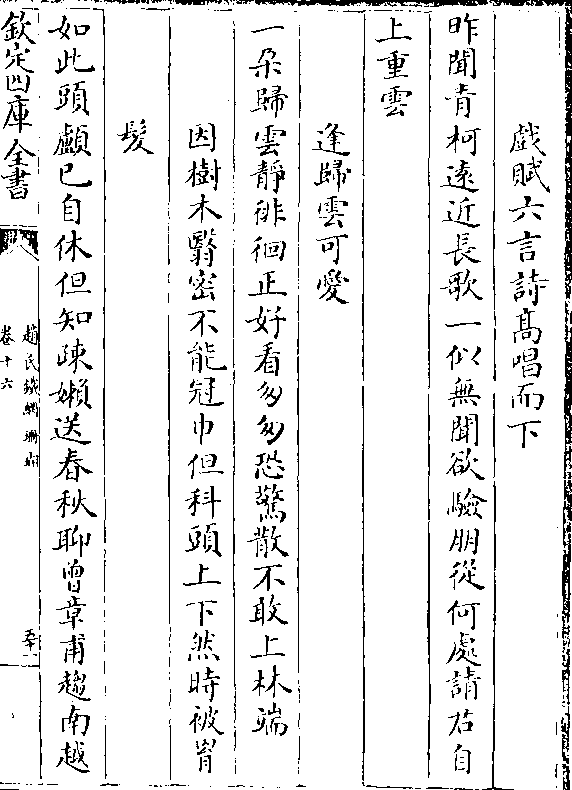 戯賦六言詩髙唱而下
昨聞青柯遠近長歌一似無聞欲驗朋從何處請君自
上重雲
逢歸雲可愛
一朶歸雲靜徘徊正好看匆匆恐驚散不敢上林端
因樹木翳宻不能冠巾但科頭上下然時被罥
髮
如此頭顱已自休但知疎嬾送春秋聊曾章甫趨南越
欽定四庫全書
趙氏鐵網珊瑚
卷十六